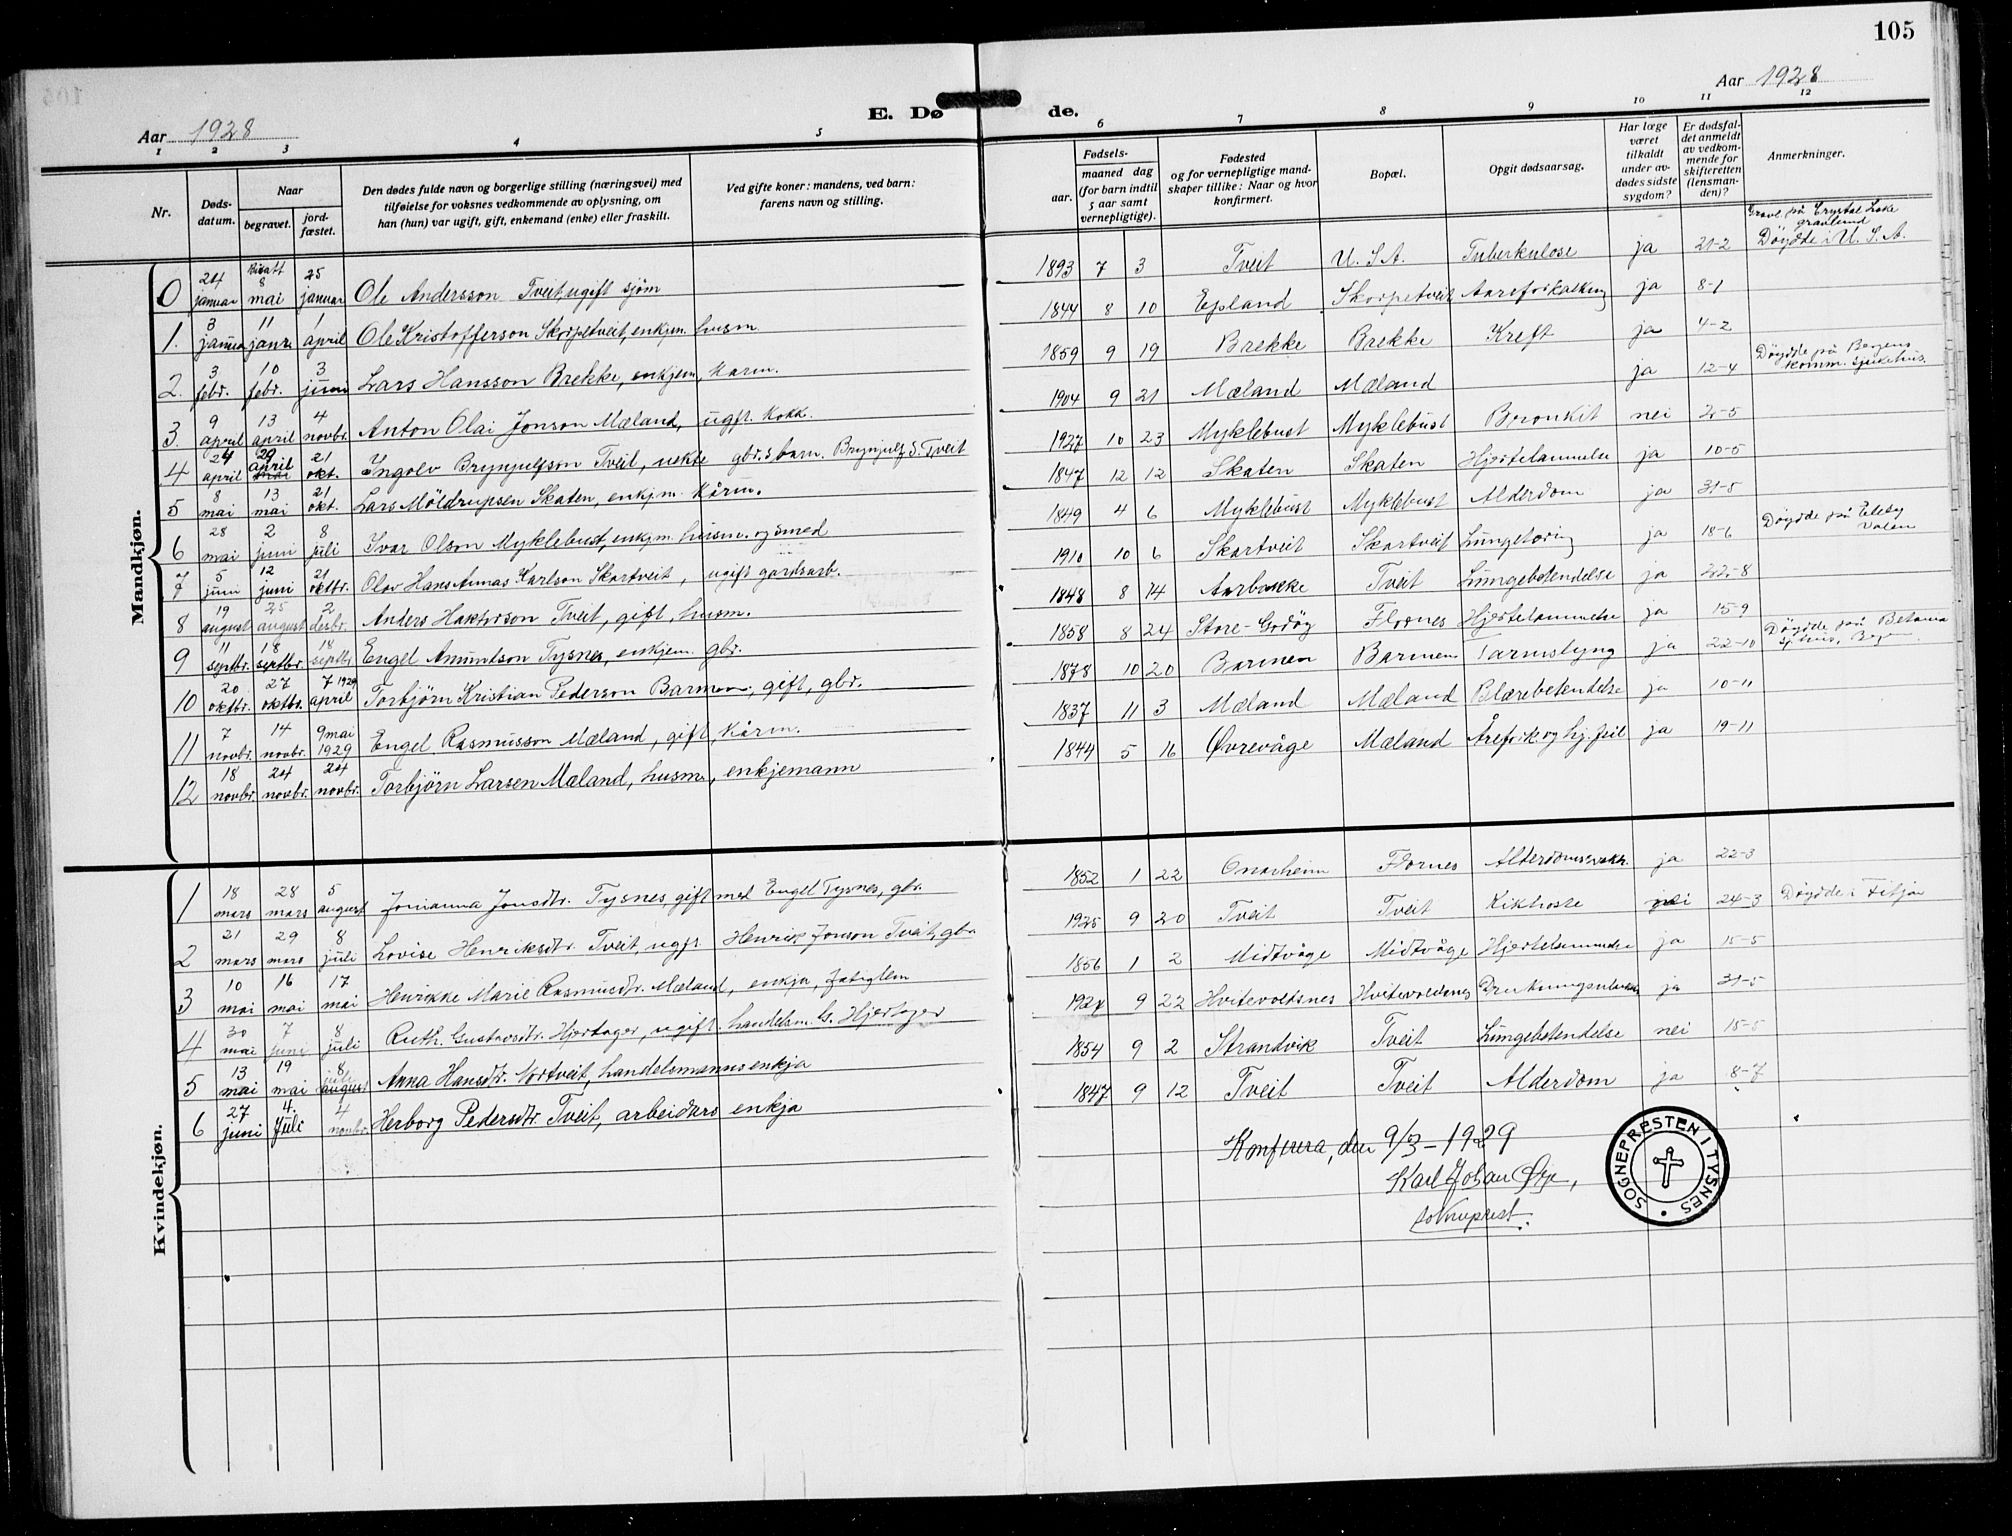 105
Aar 1928
Aar 1928
E. Dø de.
1 2 3 4 5 6 7 8 9 10 11 12
Nr.
Døds-
datum.
Naar
begravet.
jord-
fæstet.
Den dødes fulde navn og borgerlige stilling (næringsvei) med
tilføielse for voksnes vedkommende av oplysning, om
han (hun) var ugift, gift, enkemand (enke) eller fraskilt.
Ved gifte koner: mandens, ved barn:
farens navn og stilling.
Fødsels-
aar.
maaned dag
(for barn indtil
5 aar samt
vernepligtige).
Fødested
og for vernepligtige mand-
skaper tillike: Naar og hvor
konfirmert.
Bopæl.
Opgit dødsaarsag.
Har læge
været
tilkaldt
under av-
dødes sidste
sygdom?
Er dødsfal-
det anmeldt
av vedkom-
mende for
skifteretten
(lensman-
den)?
Anmerkninger.
Mandkjøn.
0 24 januar 8 mai 25 januar Ole Andersson Tveit, ugift sjöm 1893 7 3 Tveit U.S.A. Tuberkulose ja 21-2 Gravl. på Crystal Lake gravlund Döydde i U.S.A.
1. 3 januar 11 janr. 1 april Ole Kristofferson Skorpetveit, enkjem. husm. 1844 8 10 Epland Skorpetveit Aareforkalkng ja 8-1
2. 3 febr. 10 febr. 3 juni Lars Hansson Brekke, enkjem, Kårm. 1859 9 19 Brekke Brekke Kreft ja 4-2
3. 9 april 13 april 4 novbr. Anton Olai Jonson Mæland, ugft. Kokk. 1904 9 21 Mæland Mæland ja 12-4 Döydde på Bergens Komm. sjukehus.
4 24 april 29 april mai 21 okt. Ingolv Brynjulfson Tveit, uekte gbr.s barn. Brynjulf S. Tveit 1927 10 23 Myklebust Myklebust Bronkit nei 2-5
5 8 mai 13 mai 21 okt. Lars Möldrupsen Skaten, enkjm. Kårm. 1847 12 12 Skaten Skaten Hjertelammelse ja 10-5
6 28 mai 2 juni 8 juli Ivar Olson Myklebust, enkjm. husm. og smed 1849 4 6 Myklebust Myklebust Alderdom ja 31-5
7 5 juni 12 juni 21 oktbr. Olav Hans Annas Karlson Skartveit, ugift gardsarb. 1910 10 6 Skartveit Skartveit Lungetæring ja 18-6 Döydde på Valen
8 19 august 25 august 2 desbr. Anders Haktorson Tveit, gift, husm. 1848 8 14 Aarbakke Tveit Lungebetendelse ja 22-8
9 11 septbr. 18 septbr. 18 septbr. Engel Amundson Tysnes, enkjem. gbr. 1858 8 24 Store-Godöy Flornes Hjertelammelse ja 15-9
10 20 oktbr. 27 oktbr. 7 1929 april Torbjörn Kristian Pederson Barmen, gift, gbr. 1878 10 20 Barmen Barmen Tarmslyng ja 22-10 Döydde på Betania
11 7 novbr. 14 novbr. 9 mai 1929 Engel Rasmusson Mæland, gift, Kårm. 1837 11 3 Mæland Mæland Blærebetendelse ja 10-11
12 18 novbr. 24 novbr. 24 novbr. Torbjörn Larsen Mæland, husm., enkjemann 1844 5 16 Øvrevåge Mæland Årefork og hj. feil ja 19-11
Kvindekjøn.
1 18 mars 28 mars 5 august Johanna Jonsdtr. Tysnes, gift med Engel Tysnes, gbr. 1852 1 22 Onarheim Flornes ja 22-3
2 21 mars 29 mars 8 juli Lovise Henriksdtr. Tveit, ugft. Henrik Jonson Tveit, gbr 1925 9 20 Tveit Tveit Kikhoste nei 24-3 Döydde i Fitjar
3 10 mai 16 mai 17 mai Henrikke Marie Rasmusdtr. Mæland, enkja, fatiglem 1856 1 2 Midtvåge Midtvåge Hjertelammelse ja 15-5
4 30 mai 7 juni 8 juli Ruth Gustavsdtr. Hjertager, ugift. handelsm. G. Hjertager 9 22 Hvitevoldsnes Hvitevoldsnes Drukningsulukke ja 31-5
5 13 mai 19 mai 8 juli august Anna Hansdtr. Nortveit, handelsmannsenkja 1854 9 2 Strandvik Tveit Lungebetendelse nei 15-5
6 27 juni 4. Juli 4 novbr. Herborg Pedersdtr. Tveit, arbeidars enkja 1847 9 12 Tveit Tveit Alderdom ja 8-7
den 9/3-1929
Karl Johan
sokneprest.
SOGNEPRESTEN I TYSNES